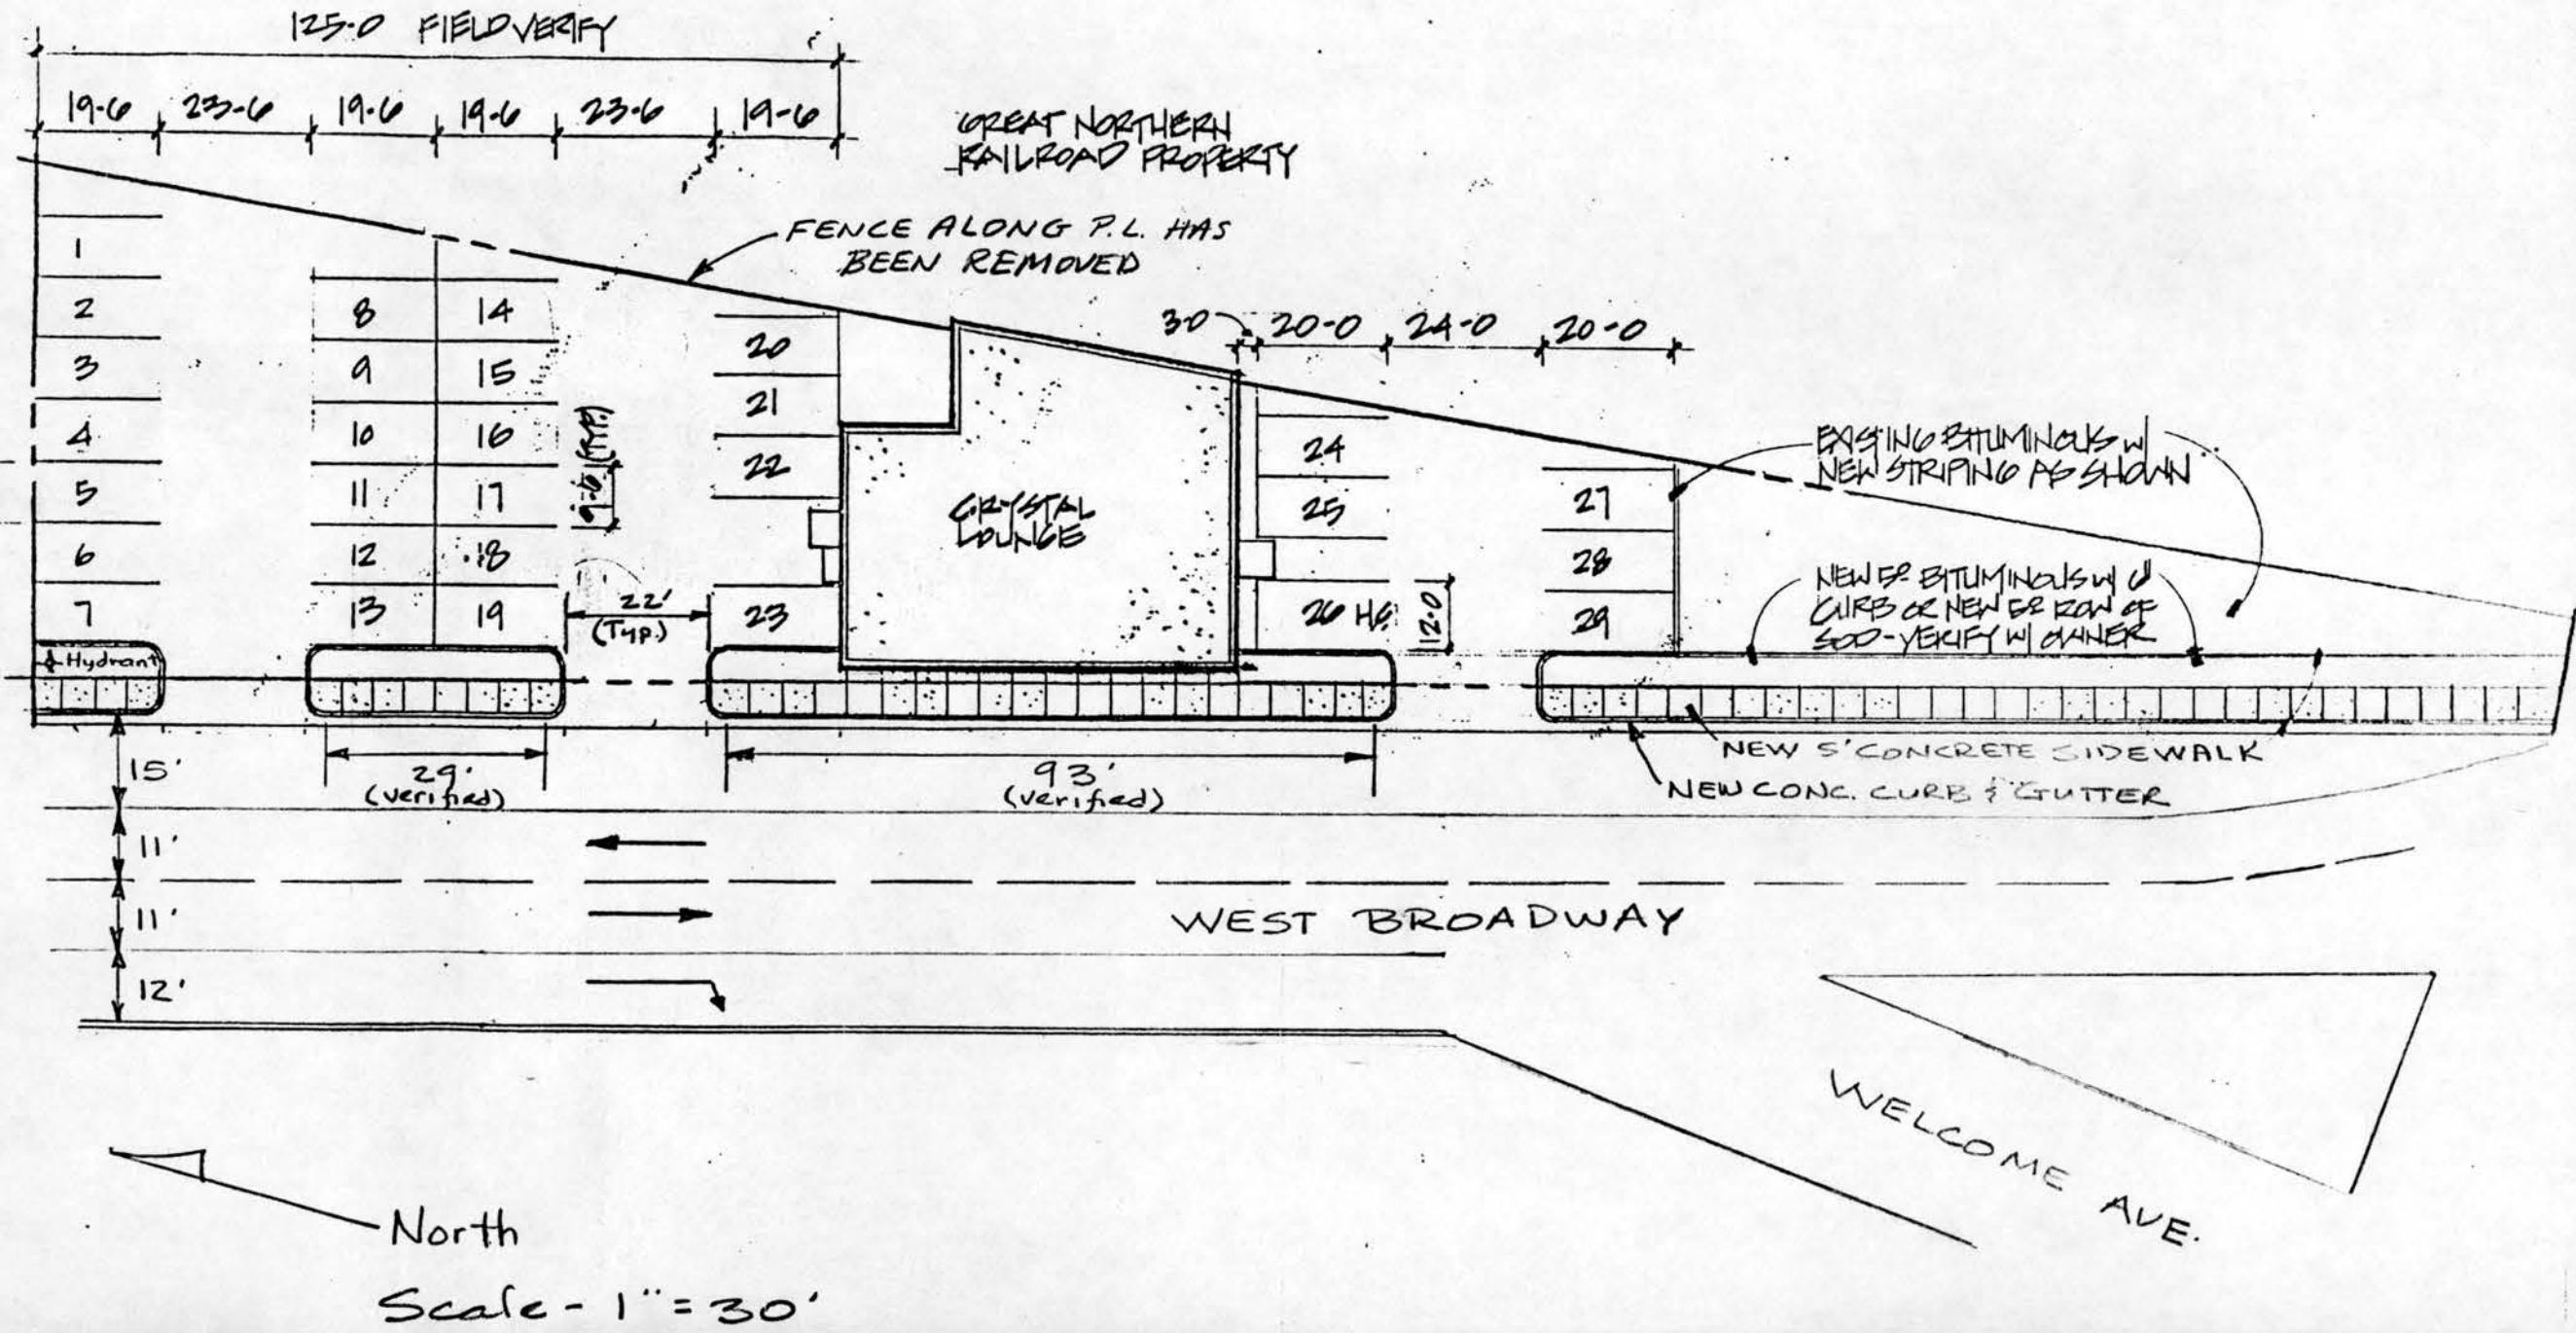 125-0 FIELD VERIFY
19-6 23-6 19-6 19-6 23-6 19-6
GREAT NORTHERN
RAILROAD PROPERTY
FENCE ALONG P.L. HAS
BEEN REMOVED
3-0 20-0 24-0 20-0
1
2
3
4
5
6
7
8
9
10
11
12
13
14
15
16
17
18
19
9-6 (TYP.)
22'
(Typ.)
20
21
22
23
CRYSTAL
LOUNGE
24
25
26 HC
12-0
27
28
29
EXISTING BITUMINOUS w/
NEW STRIPING AS SHOWN
NEW BITUMINOUS w/
CURB OR NEW ROW OF
SOD-VERIFY W/ OWNER
Hydrant
NEW 5' CONCRETE SIDEWALK
NEW CONC. CURB & GUTTER
15'
29'
(verified)
93'
(verified)
11'
11'
12'
WEST BROADWAY
WELCOME AVE.
North
Scale - 1" = 30'